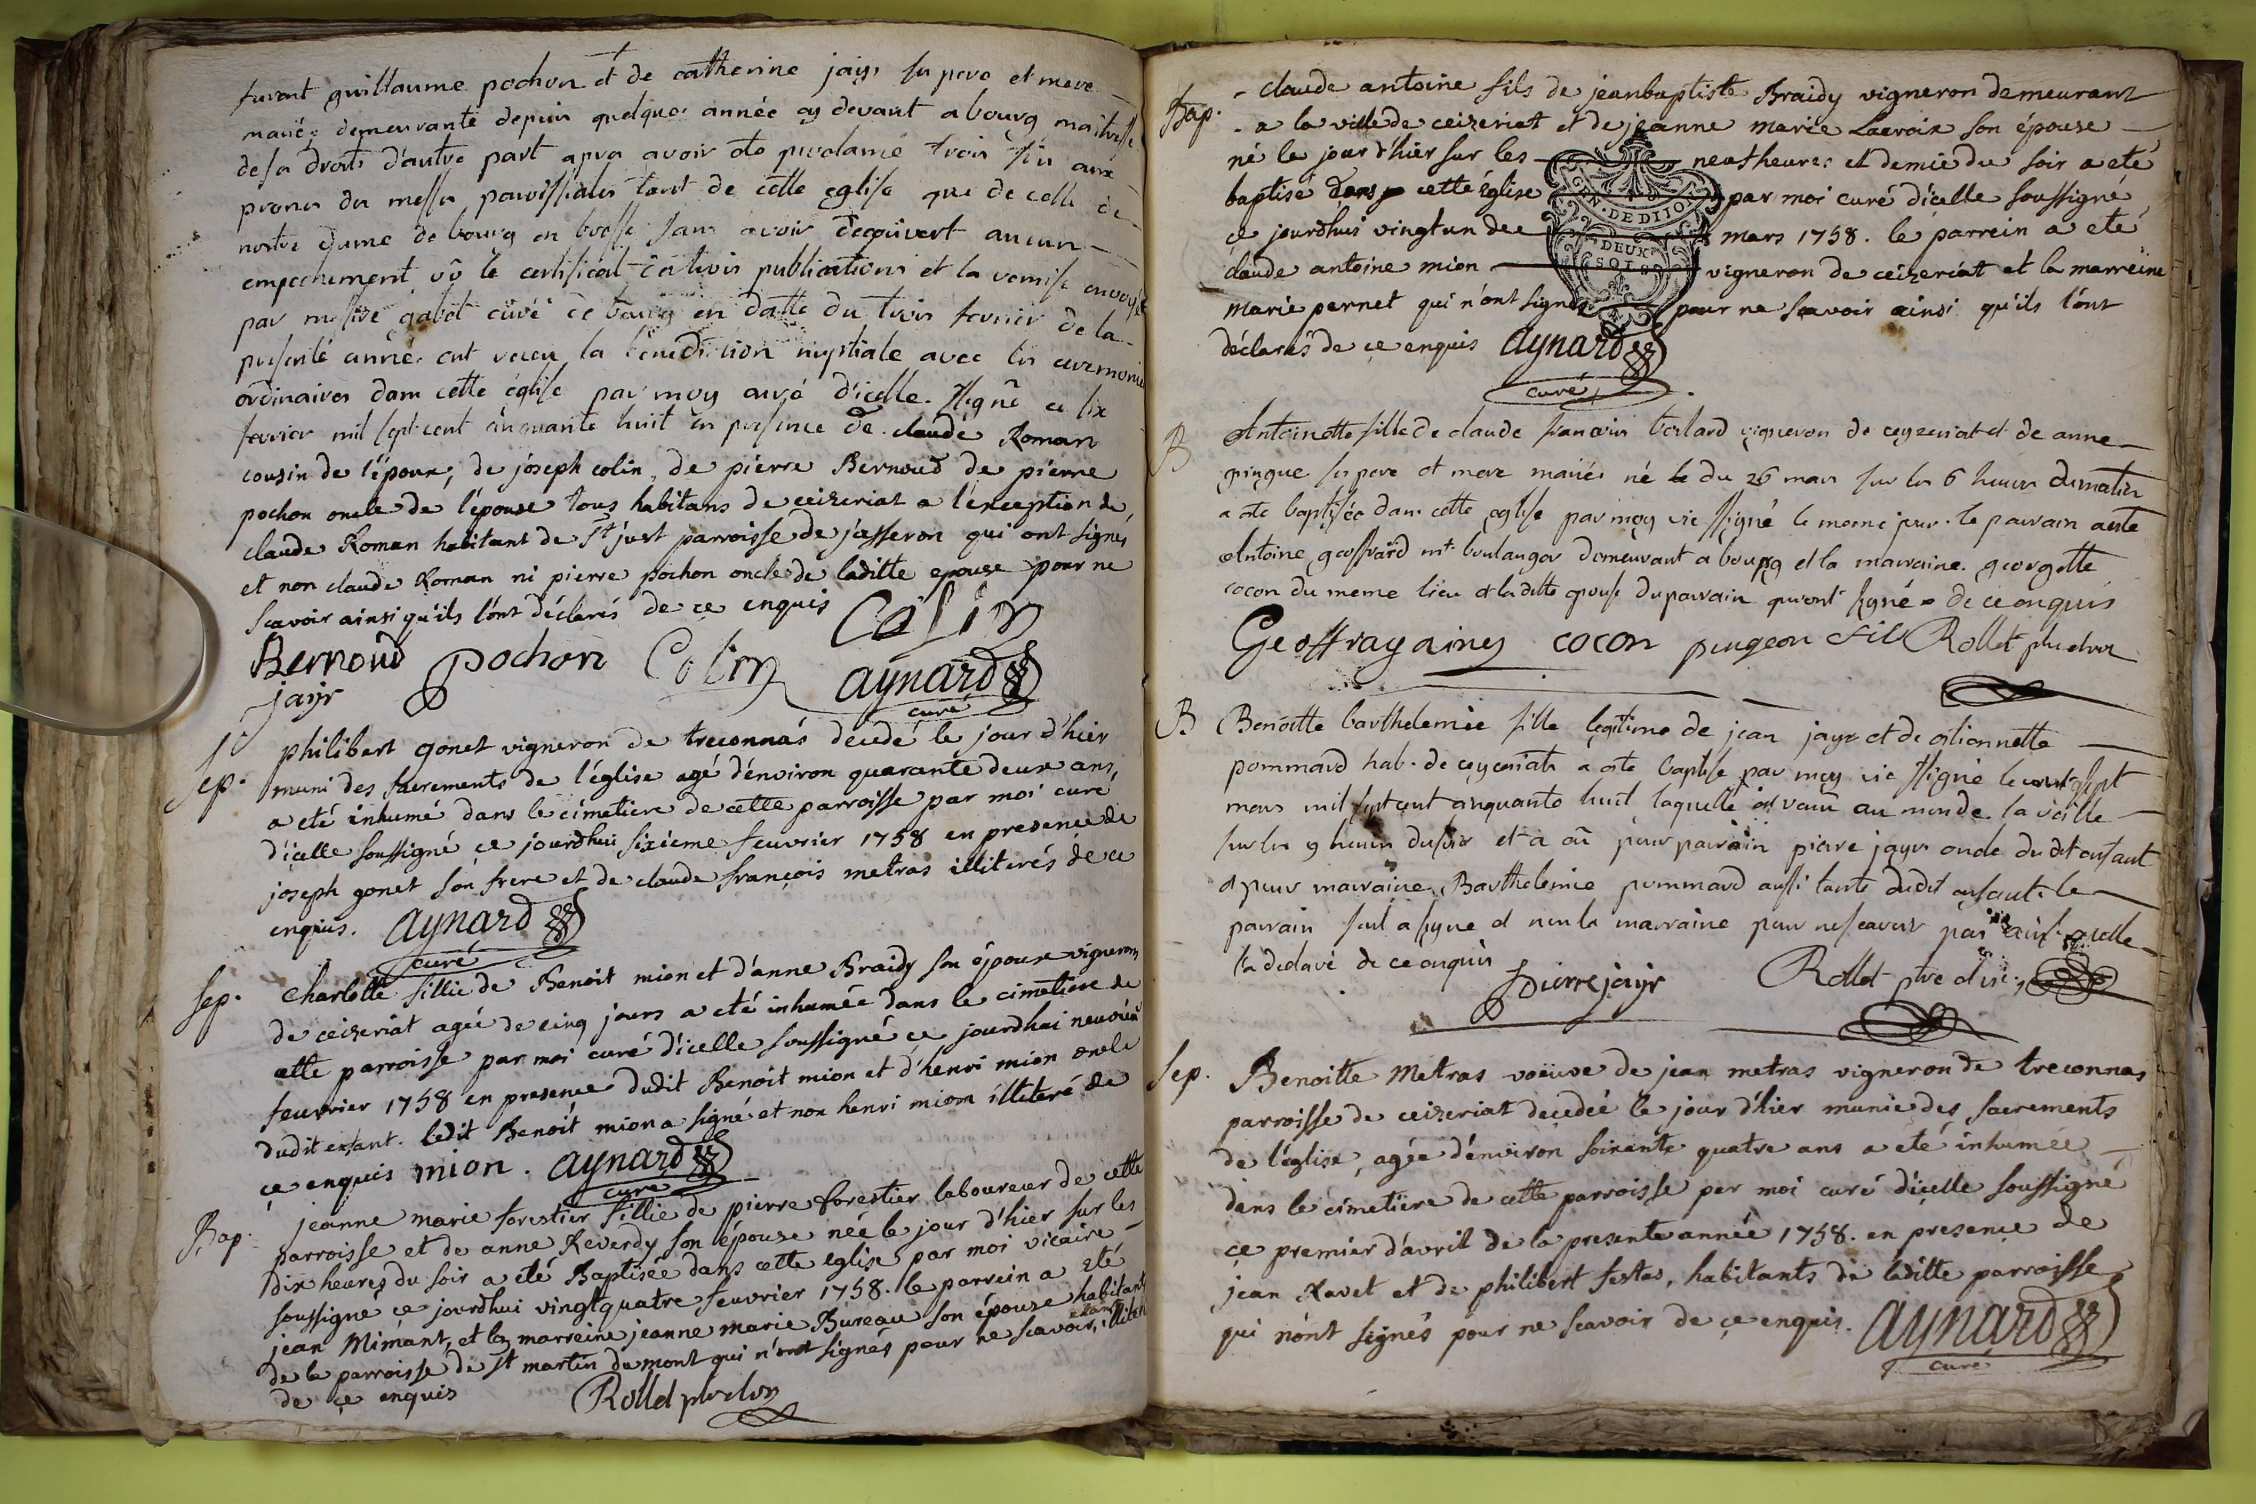 furent guillaume pochon et de catherine jayr ses pere et mere
mariés demeurante depuis quelques année cy devant a bourg maitresse
de ses droits d'autre part apres avoir ete proclamé trois fois aux
prones des messes paroissiales tant de cette eglise que de celle de
nostre dame de bourg en bresse sans avoir decouvert aucun
empechement vû le certificat de trois publications et la remise envoyée
par messire gabet curé de bourg en datte du trois fevrier de la
presente année ont receu la benediction nuptiale avec les ceremonies
ordinaires dans cette église par moy curé d'icelle ssigné ce six
fevrier mil sept cent cinquante huit en presence de claude Roman
cousin de l'époux, de joseph colin, de pierre Bernoud de pierre
pochon oncle de l'épouse tous habitans de ceizeriat a l'exception de
claude Roman habitant de St just parroisse de jasseron qui ont signés
et non claude Roman ni pierre pochon oncle de laditte epouse pour ne
scavoir ainsi qu'ils l'ónt déclarés de ce enquis Colin
Bernoud pochon Colin aynard
jayr curé
Sep. philibert gonet vigneron de treconnas decedé le jour d'hier
muni des sacrements de l'église agé d'énviron quarante deux ans,
a eté inhumé dans le cimetiere de cette parroisse par moi curé
d'icelle soussigné ce jourdhui sixieme feuvrier 1758 en presence de
joseph gonet son frere et de claude françois metras illiterés de ce
enquis. aynard
curé
Sep. Charlotte fillie de Benoit mion et d'anne Braidy son épouse vigneron
de ceizeriat agée de cinq jours a eté inhumée dans le cimetiere de
cette parroisse par moi curé d'icelle soussigné ce jourdhui neuvième
feuvrier 1758 en presence dudit Benoit mion et d'henri mion oncle
dudit enfant. ledit Benoit mion a signé et non henri mion illiteré de
ce enquis mion. aynard
curé
Bap. jeanne marie forestier fillie de pierre forestier laboureur de cette
parroisse et de anne Reverdy son épouse née le jour d'hier sur les
dix heures du soir a eté Baptisée dans cette eglise par moi vicaire
soussigné ce jourdhui vingtquatre feuvrier 1758. le parrein a eté
jean Mimant, et la marreine jeanne marie Bureau son épouse habitants
de la parroisse de st martin du mont qui n'ont signés pour ne scavoir, etant illiterés
de ce enquis Rollet
Bap. claude antoine fils de jeanbaptiste Braidy vigneron demeurant
a la ville de ceizeriat et de jeanne marie Lacroix son épouse
né le jour d'hier sur les neuf heures et demie du soir a eté
baptisé dans cette église par moi curé d'icelle soussigné
ce jourdhui vingtun de mars 1758. le parrein a eté
claude antoine mion vigneron de ceizeriat et la marreine
marie pernet qui n'ont signés pour ne scavoir ainsi qu'ils l'ónt
déclarés de ce enquis aynard
curé
GEN. DE DIJON
DEUX
SOLS
B Antoinette fille de claude francois vigneron de ceyzeriat et de anne
pingue ses pere et mere mariés né le du 26 mars sur les 6 heures du matin
a ete baptisée dans cette eglise par moy vic ssigné le meme jour. le parrain a ete
Antoine geoffrard mt. boulanger demeurant a bourg et la marraine georgette
cocon du meme lieu et laditte epouse du parrain qui ont signé de ce enquis
Geoffray aines cocon pingeon fils Rollet
B Benoitte barthelemie fille legitime de jean jayr et de etiennette
pommard hab. de ceyzeriat a ete baptisé par moy vic ssigné le vint sept
mars mil sept cent cinquante huit laquelle est venu au monde la veille
sur les 9 heures du soir et a eû pour parrain pierre jayr oncle du dit enfant
et pour marraine Barthelemie pommard aussi tante dudit enfant le
parrain seul a signe et non la marraine pour ne scavoir pas ainsi quelle
la declaré de ce enquis
Pierre jayr Rollet ptre et vic.
Sep. Benoitte Metras voeuve de jean metras vigneron de treconnas
parroisse de ceizeriat decedeé le jour d'hier munie des sacrements
de l'église, agée d'énviron soixante quatre ans a eté inhumée
dans le cimetiere de cette parroisse par moi curé d'icelle soussigné
ce premier d'avril de la presente année 1758. en presence de
jean Ravet et de philibert festas, habitants de laditte parroisse
qui n'ónt signés pour ne scavoir de ce enquis. aynard
curé